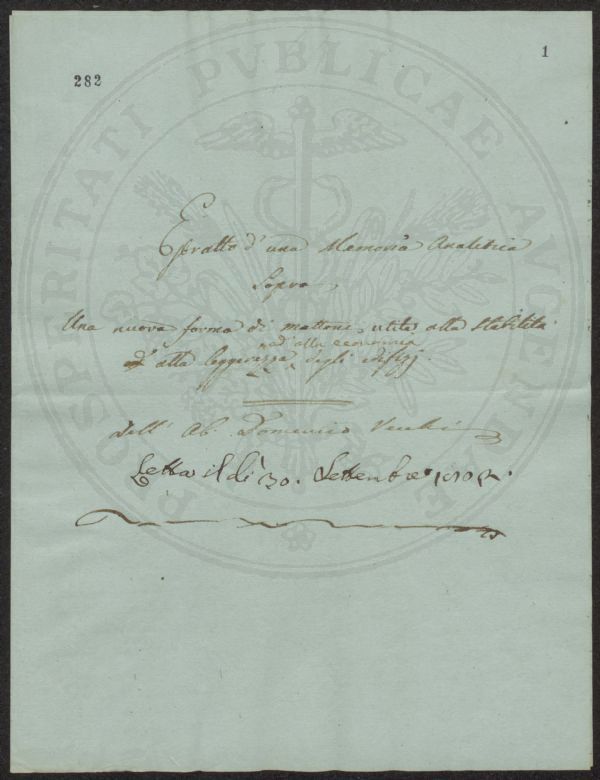 1
282
PROSPERITATI PVBLICAE AVGENDAE
Estratto d'una Memoria Analitica
Sopra
Una nuova forma di mattoni, utile alla stabilità
ed alla economia
alla leggerezza degli edifizj
Dell' Ab. Domenico
Letta il dì 30. Settembre